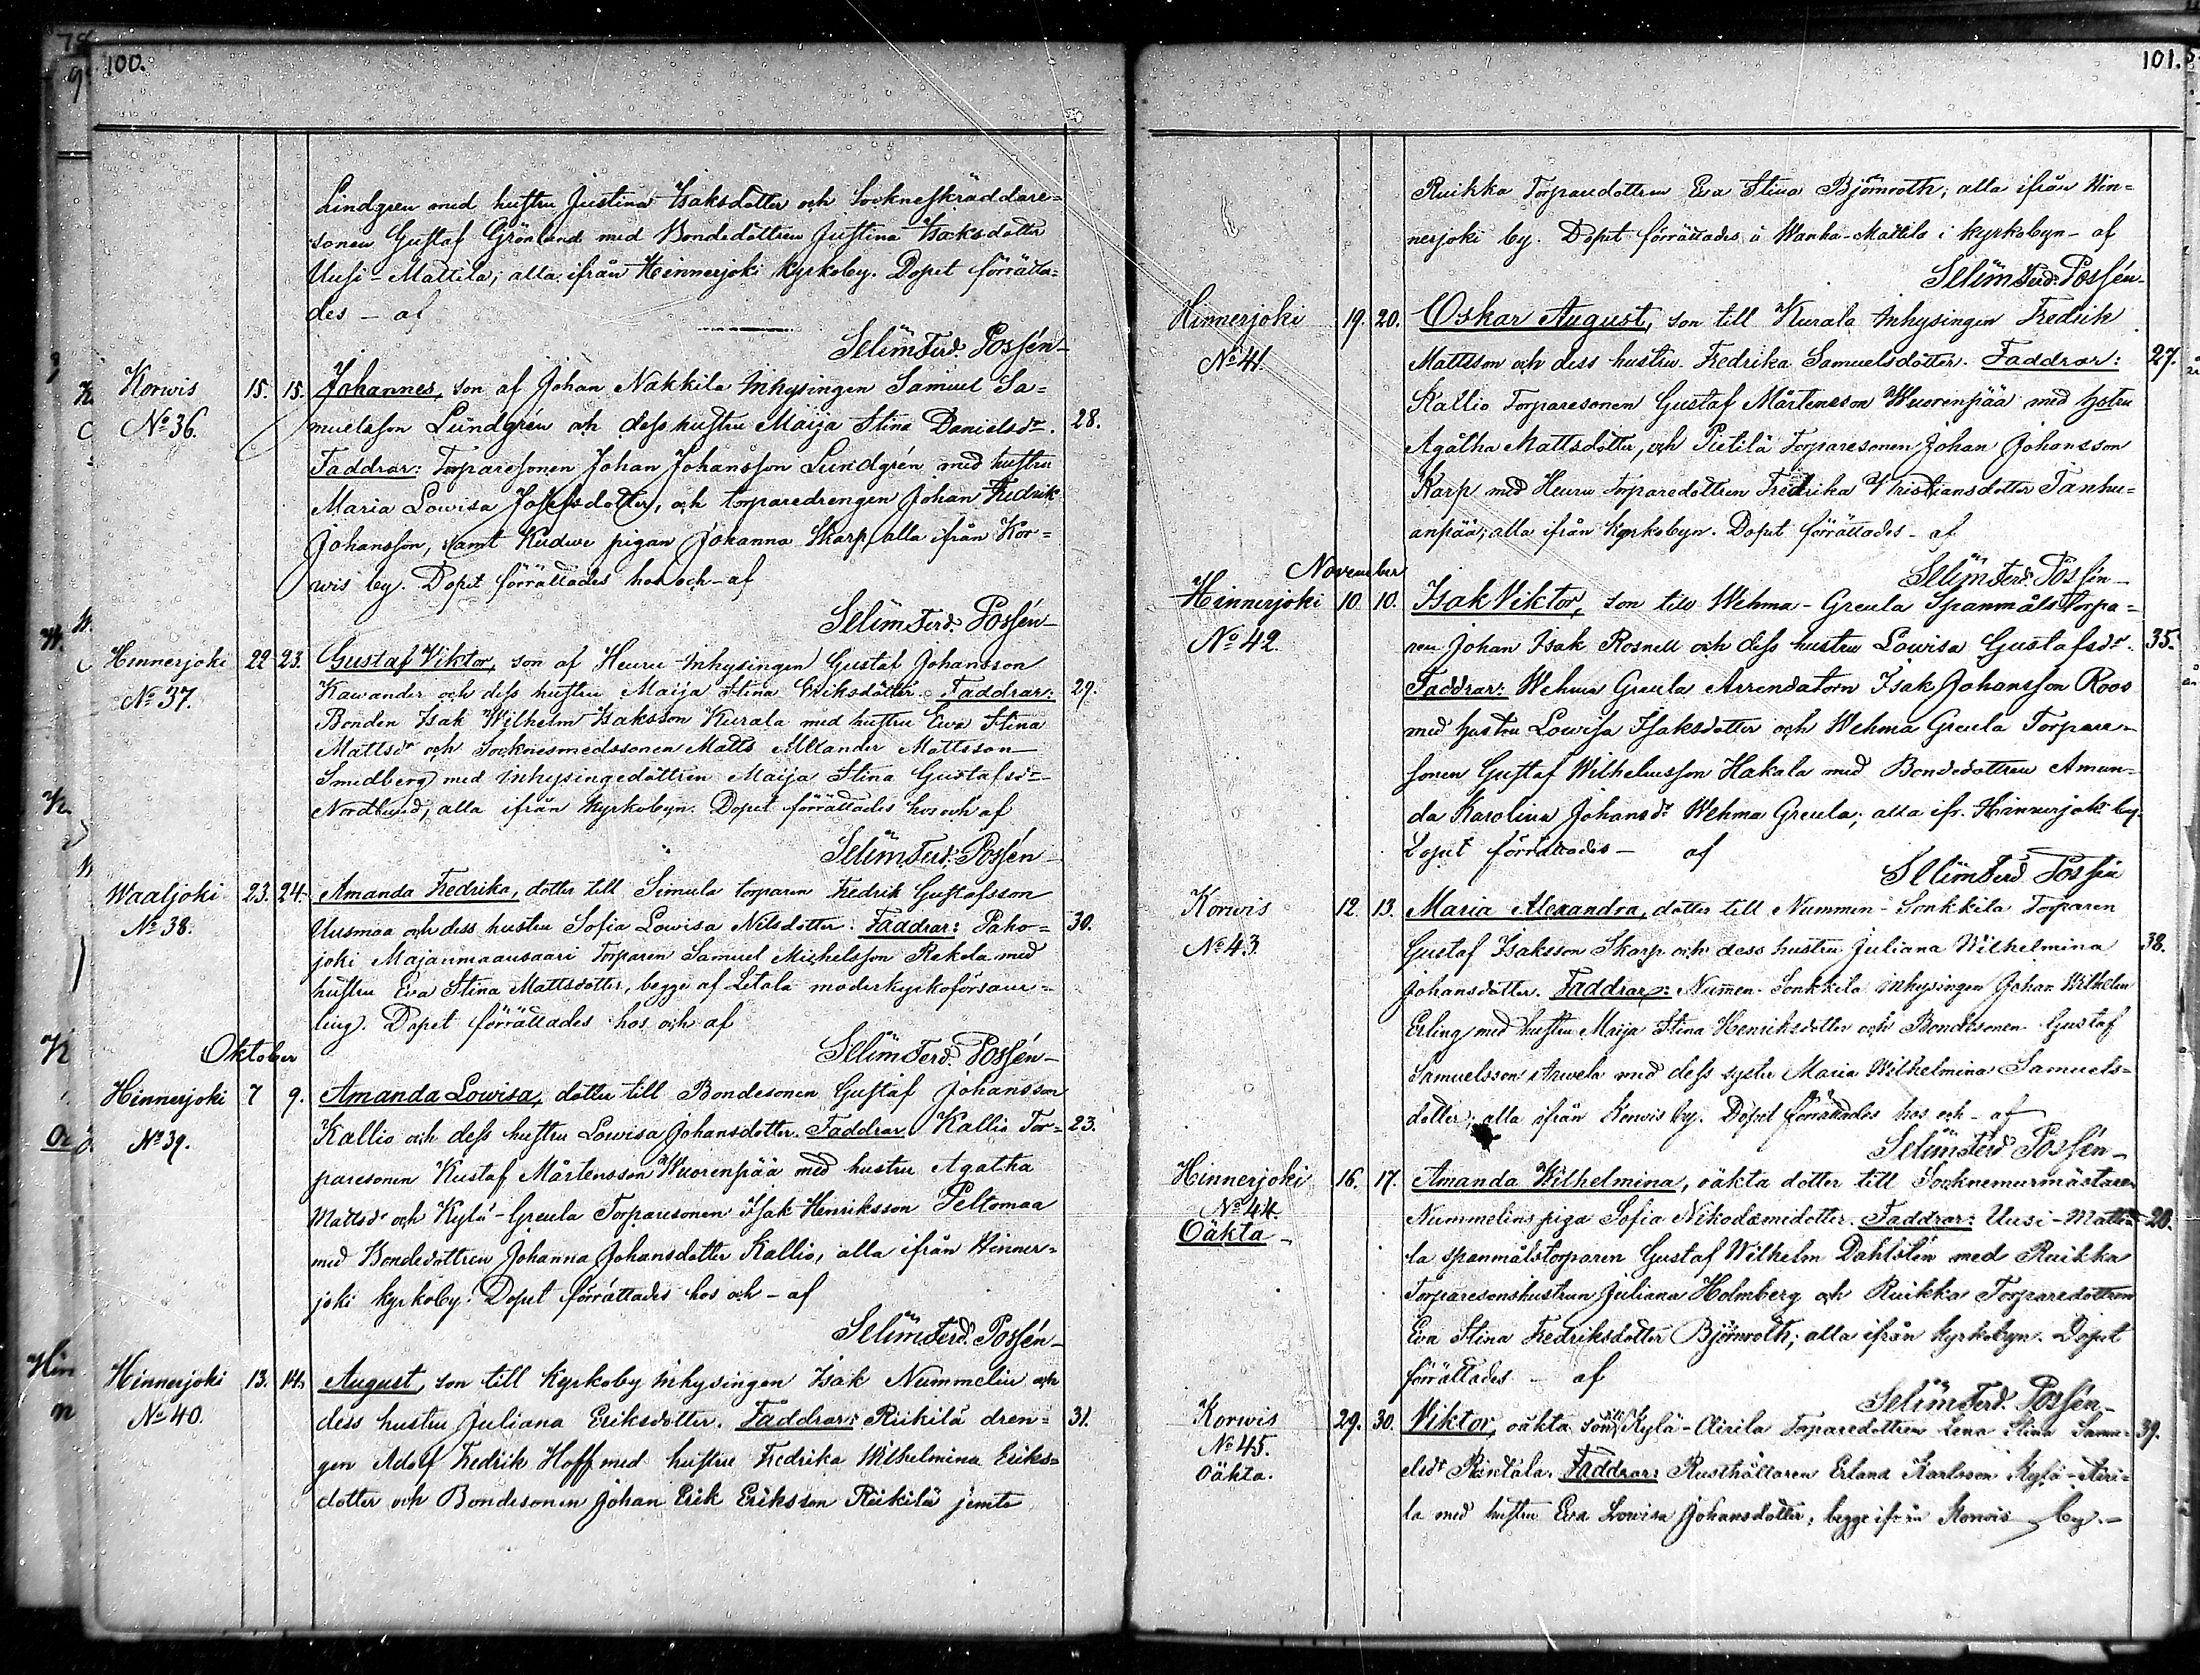 100.
Lindgren med hustru Justina Isaksdotter och Sockneskräddare-
sonen Gustaf Grönlund med Bondedottren Justina Isaksdotter
Uusi-Mattila; alla ifrån Hinnerjoki kyrkoby. Dopet förrätta-
des - af
Selim Ferd. Possén-
Korwis 15. 15. Johannes, son af Johan Nakkila Inhysingen Samuel Sa-
No 36. muelsson Lundgrén och dess hustru Maija Stina Danielsdr. 28.
Faddrar: Torparesonen Johan Johansson Lundgrén med hustru
Maria Lowisa Josefsdotter, och torparedrengen Johan Fredrik
Johansson, samt Kudwe pigan Johanna Skarp, alla ifrån Kor-
wis by. Dopet förrättades hos och - af
Selim Ferd. Possén-
Hinnerjoki 22 23. Gustaf Viktor, son af Heuru Inhysingen Gustaf Johansson
No 37. Kawander och dess hustru Maija Stina Eriksdotter. Faddrar: 29.
Bonden Isak Wilhelm Isaksson Kurala med hustru Eva Stina
Mattsdr och Socknesmedssonen Matts Alexander Mattsson
Smedberg med Inhysingedottren Maija Stina Gustafsdr
Nordlund, alla ifrån kyrkobyn. Dopet förrättades hos och af
Selim Ferd. Possén-
Waaljoki 23. 24. Amanda Fredrika, dotter till Simula torparen Fredrik Gustafsson
No 38. Uusmaa och dess hustru Sofia Lowisa Nilsdotter. Faddrar: Paho- 30.
joki Majanmaansaari Torparen Samuel Michelsson Rekola med
hustru Eva Stina Mattsdotter, begge af Letala moderkyrkoförsam-
ling. Dopet förrättades hos och af
Selim Ferd. Possén-
Oktober
Hinnerjoki 7 9. Amanda Lowisa, dotter till Bondesonen Gustaf Johansson
No 39. Kallio och dess hustru Lowisa Johansdotter. Faddrar: Kallio Tor- 23.
paresonen Kustaf Mårtensson Wuorenpää med hustru Agatha
Mattsdr och Kylä-Greula Torparesonen Isak Henriksson Peltomaa
med Bondedottren Johanna Johansdotter Kallio, alla ifrån Hinner-
joki kyrkoby. Dopet förrättades hos och - af
Selim Ferd. Possén-
Hinnerjoki 13. 14. August, son till Kyrkoby Inhysingen Isak Nummelin och
No 40. dess hustru Juliana Eriksdotter. Faddrar: Riikilä dren- 31.
gen Adolf Fredrik Hoff med hustru Fredrika Wilhelmina Eriks-
dotter och Bondesonen Johan Erik Eriksson Riikilä jemte
101.
Ruikka Torparedottren Eva Stina Björnroth, alla ifrån Hin-
nerjoki by. Dopet förrättades å Wanha-Mattila i kyrkobyn - af
Selim Ferd. Possén-
Hinnerjoki 19. 20. Oskar August, son till Kurala Inhysingen Fredrik
No 41. Mattsson och dess hustru Fredrika Samuelsdotter. Faddrar: 27.
Kallio Torparesonen Gustaf Mårtensson Wuorenpää med hustru
Agatha Mattsdotter, och Pietilä Torparesonen Johan Johansson
Karp med Heuru torparedottren Fredrika Kristiansdotter Tanhu-
anpää, alla ifrån kyrkobyn. Dopet förrättades - af
Selim Ferd. Possén-
November
Hinnerjoki 10. 10. Isak Viktor, son till Wehma-Greula Spanmålstorpa-
No 42. ren Johan Isak Rosnell och dess hustru Lowisa Gustafsdr. 35.
Faddrar: Wehma Greula Arrendatorn Isak Johansson Roos
med hustru Lowisa Isaksdotter och Wehma Greula Torpare-
sonen Gustaf Wilhelmsson Hakala med Bondedottren Aman-
da Karolina Johansdr Wehma Greula; alla ifr. Hinnerjoki by.
Dopet förrättades - af
Selim Ferd. Possén
Korwis 12. 13. Maria Alexandra, dotter till Nummen-Sonkkila Torparen
No 43. Gustaf Isaksson Skarp och dess hustru Juliana Wilhelmina 38.
Johansdotter. Faddrar: Nummen-Sonkkila Inhysingen Johan Wilhelm
Erling med hustru Maija Stina Henriksdotter och Bondesonen Gustaf
Samuelsson Arwela med dess syster Maria Wilhelmina Samuels-
dotter; alla ifrån Korwis by. Dopet förrättades hos och - af
Selim Ferd. Possén-
Hinnerjoki 16. 17. Amanda Wilhelmina, oäkta dotter till Socknemurmästaren
No 44. Nummelins piga Sofia Nikodemidotter. Faddrar: Uusi-Matti- 20.
Oäkta - la spanmålstorparen Gustaf Wilhelm Dahlstén med Ruikka
Torparesonshustrun Juliana Holmberg och Ruikka Torparedottren
Eva Stina Fredriksdotter Björnroth; alla ifrån kyrkobyn. Dopet
förrättades - af
Selim Ferd. Possén-
Korwis 29. 30. Viktor, oäkta son till Kylä-Äirilä Torparedottren Lena Stina Samu- 39.
No 45. elsdr Rintala. Faddrar: Rusthållaren Erland Karlsson Kylä-Äiri-
Oäkta. lä med hustru Eva Lowisa Johansdotter, begge ifrån Korwis by.-